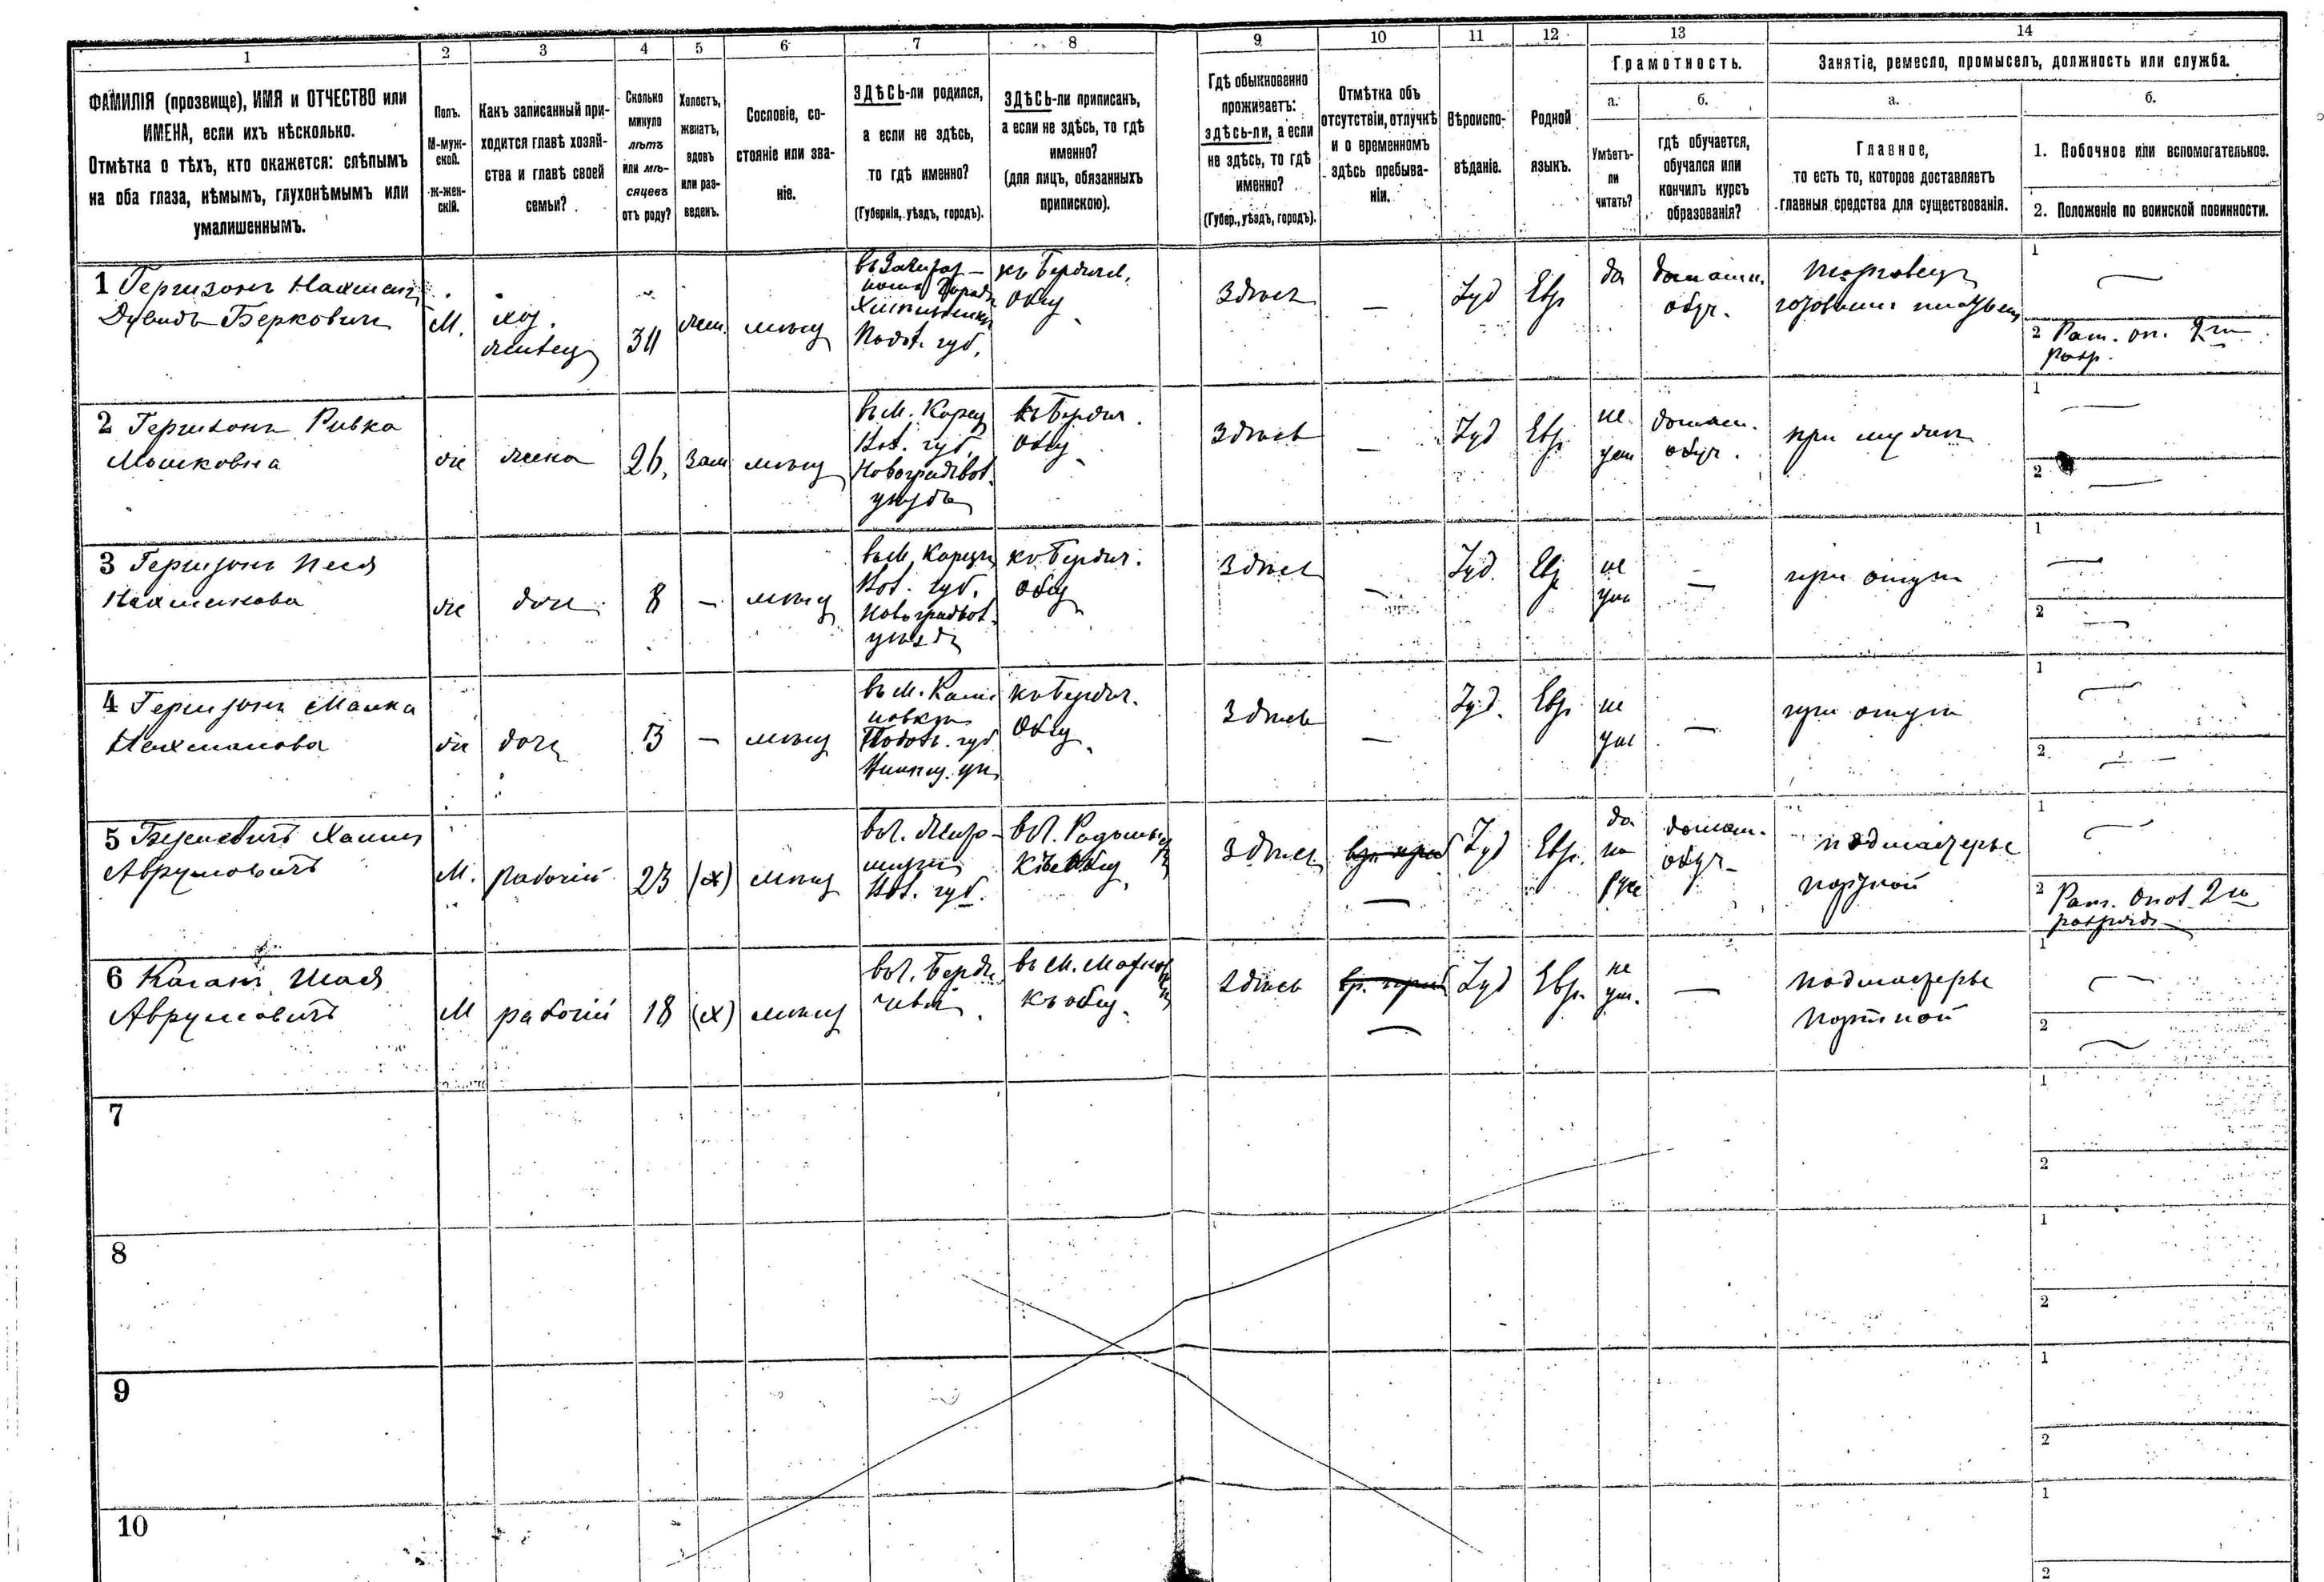 1 2 3 4 5 6 7 8 9 10 11 12 13 14
ФАМИЛІЯ (прозвище), ИМЯ и ОТЧЕСТВО или
ИМЕНА, если ихъ нѣсколько.
Отмѣтка о тѣхъ, кто окажется: слѣпымъ
на оба глаза, нѣмымъ, глухонѣмымъ или
умалишеннымъ.
Полъ.
М-муж-
ской.
ж-жен-
скій.
Какъ записанный при-
ходится главѣ хозяй-
ства и главѣ своей
семьи?
Сколько
минуло
лѣтъ
или мѣ-
сяцевъ
отъ роду?
Холостъ,
женатъ,
вдовъ
или раз-
веденъ.
Сословіе, со-
стояніе или зва-
ніе.
ЗДѢСЬ-ли родился,
а если не здѣсь,
то гдѣ именно?
(Губернія, уѣздъ, городъ).
ЗДѢСЬ-ли приписанъ,
а если не здѣсь, то гдѣ
именно?
(для лицъ, обязанныхъ
припискою).
Гдѣ обыкновенно
проживаетъ:
здѣсь-ли, а если
не здѣсь, то гдѣ
именно?
(Губер., уѣздъ, городъ).
Отмѣтка объ
отсутствіи, отлучкѣ
и о временномъ
здѣсь пребыва-
ніи.
Вѣроиспо-
вѣданіе.
Родной
языкъ.
Грамотность.
а.
Умѣетъ-
ли
читать?
б.
гдѣ обучается,
обучался или
кончилъ курсъ
образованія?
Занятіе, ремесло, промыселъ, должность или служба.
а.
Главное,
то есть то, которое доставляетъ
главныя средства для существованія.
б.
1. Побочное или вспомогательное.
2. Положеніе по воинской повинности.
1 Гершзонъ Нахман
Дувидъ Берковичъ
М.
хоз.
34
мѣщ
Подол. губ.
къ Бердич.
общ
Здѣсь
—
Іуд
Евр
да
домашн.
обуч.
1
2 Рат. оп. 2 го
разр.
2 Гершзонъ Ривка
Мошковна
ж
жена
26,
зам
мѣщ
въ м. Корец
Вол. губ.
Новоградвол.
уѣзда
къ Бердич.
общ
Здѣсь
—
Іуд
Евр.
не
ум
домаш.
обуч.
при мужѣ
1
2
3 Гершзонъ Песя
Нахманова
ж
дочь
8
—
мѣщ
въ м. Корцѣ
Вол. губ.
Новоградвол.
уѣзда
къ Бердич.
общ
Здѣсь
—
Іуд.
Евр
не
ум
—
при отцѣ
1
2
4 Гершзонъ Малка
Нахманова
ж
дочь
3
—
мѣщ
въ м.
Подол. губ
къ Бердич.
Общ
Здѣсь
—
Іуд.
Евр.
не
ум
—
при отцѣ
1
2
5
Аврумовичъ
М.
рабочій
23
(х)
мѣщ
въ г. Жито-
мирѣ
Вол. губ.
Здѣсь
—
Іуд
Евр.
да
по
рус
домаш.
обуч.
подмастерье
портной
1
2 Рат. Опол. 2 го
разряда
6 Каганъ Шая
Аврумовичъ
М
рабочій
18
(х)
мѣщ
въ г. Берди-
чевѣ
Здѣсь
—
Іуд
Евр.
не
ум.
—
подмастерье
портной
1
2
7
1
2
8
1
2
9
1
2
10
1
2